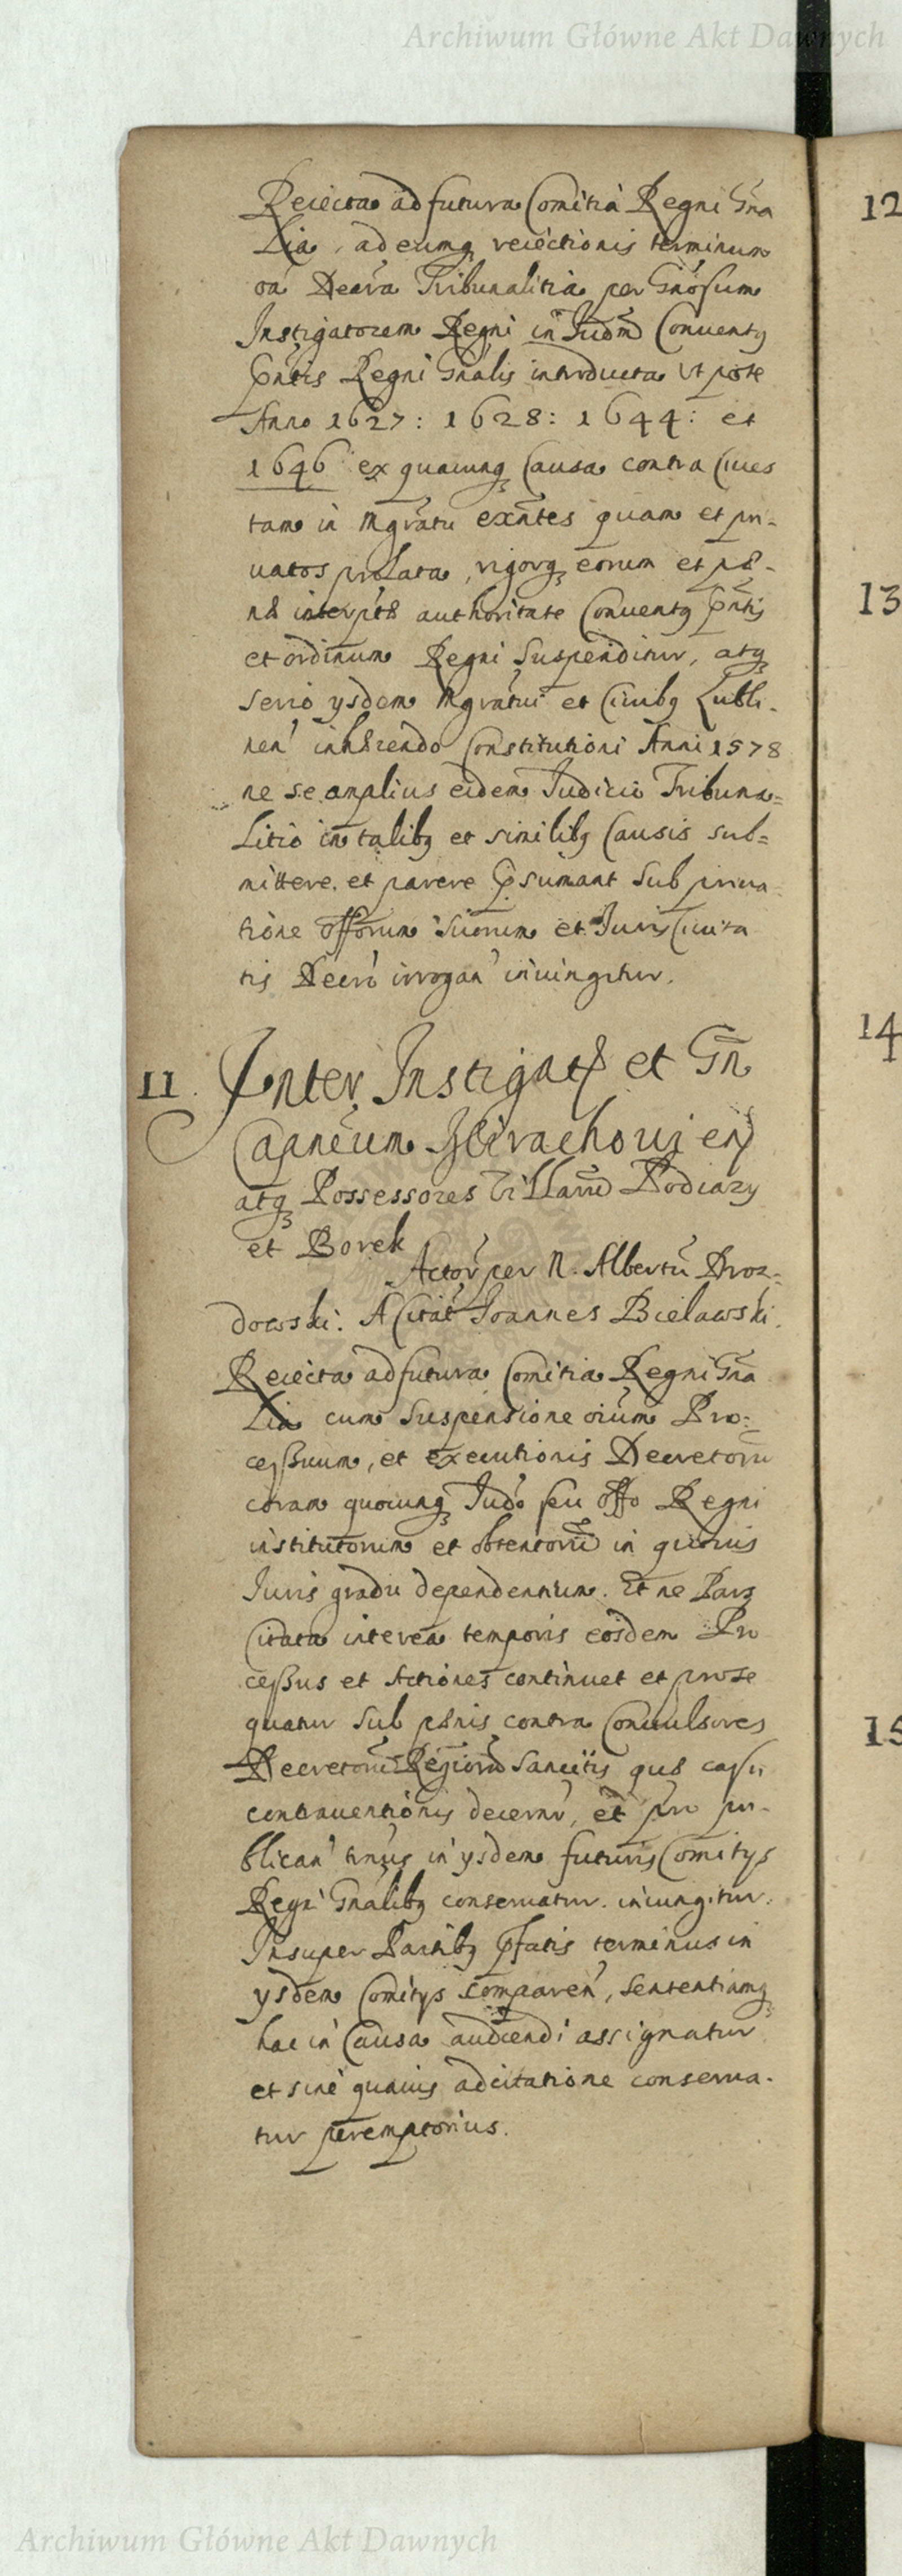 Archiwum Główne Akt Dawnych
Reiecta ad futura Comitia Regni Gna
Lia, ad eumq reiectionis terminum
oa Decra Tribunalitia per Gnosum
Instigatorem Regni in Iudm Conventq
pntis Regni Gnalis introducta Ut pote
Anno 1627: 1628: 1644: et
1646 ex quacunq Causa contra Ciues
tam in Mgratu exntes quam et pri-
uatos prolata, rigorq eorum et
authoritate Conventq pntis
et ordinum Regni Suspenditur, atq
serio ysdem Mgratui et Ciuibq Lubli-
nen inhærendo Constitutioni Anni 1578
ne se amplius eidem Iudicio Tribuna=
Litio in talibq et similibq Causis sub=
mittere, et parere psumant sub priua-
tione offorum suorum et Iuris Ciuita
tis Decro irrogan iniungitur.
11. Inter Instigat et Gn
Capneum
atq Possessores Villaru Podlazy
et Borek
Actor per N. Albertu Droz=
dowski. A Citat Ioannes Bielawski.
Reiecta ad futura Comitia Regni Gna
Lia cum Suspensione oium Pro=
cessuum, et executionis Decretoru
coram quocunq Iudo seu offo Regni
institutorum et obtentoru in quouis
Iuris gradu dependentium. Et ne Pars
Citata interea temporis eosdem Pro
cessus et Actiones continuet et prose
quatur sub pænis contra Conuulsores
Decretoru Regioru sancitis quæ casu
contrauentionis decern, et pro pu-
blican tnus in ysdem futuris Comitys
Regni Gnalibq conseruatur. iniungitur.
Insuper Partibq pfatis terminus in
ysdem Comitys comparen, sententiamq
hac in Causa audiendi assignatur
et sine quauis adcitatione conserua-
tur peremptorius.
12
13
14
15
Archiwum Główne Akt Dawnych